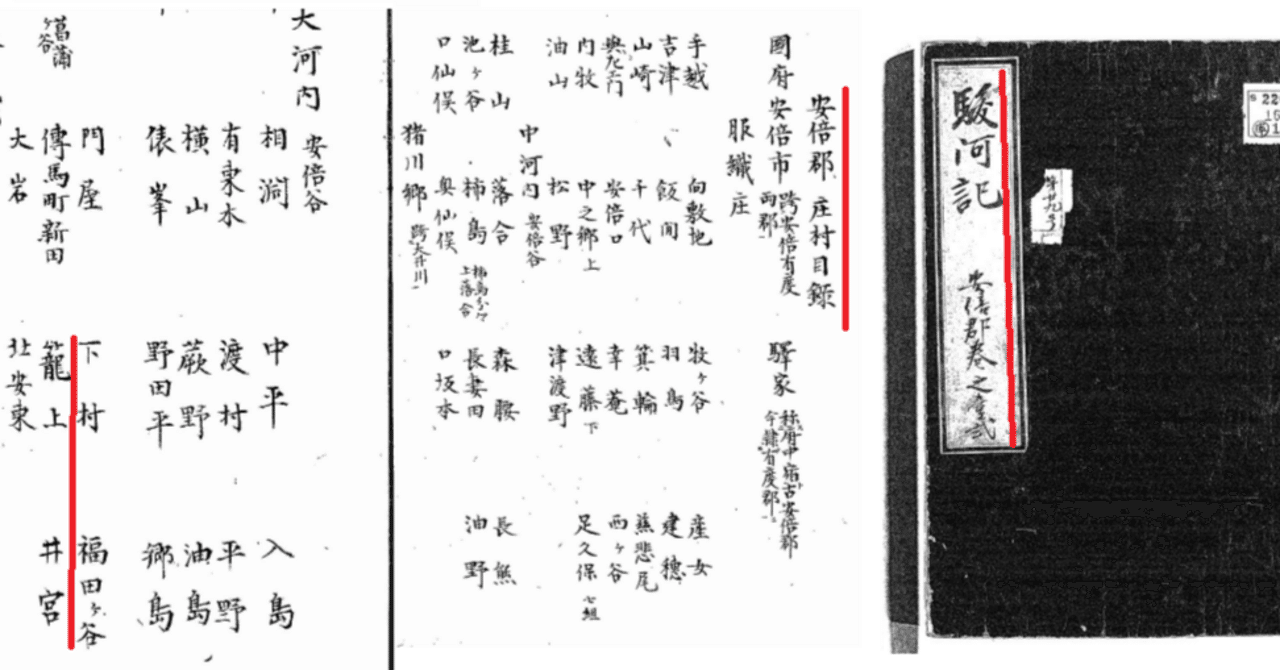 駿河記 安倍郡巻之壹弐
安倍郡 庄村目録
國府 安倍市 跨安倍有度両郡 驛家 称府中宿古安倍郡今隷有度郡
服織庄
手越 向敷地 牧ヶ谷 産女
吉津 飯間 羽鳥 建穂
山崎 千代 箕輪 慈悲尾
與左エ門 安倍口 幸菴 西ヶ谷
内牧 中之郷上 遠藤下 足久保七組
油山 松野 津渡野
中河内 安倍谷
桂山 落合 森腰 長熊
池ヶ谷 柿島 上落合 長妻田 油野
口仙俣 奥仙俣 口坂本
猪川郷 跨大井川
大河内 安倍谷
相淵 中平 入島
有東木 渡村 平野
横山 蕨野 油島
俵峯 野田平 郷島
門屋 下村 福田ヶ谷
菖蒲ヶ谷 傳馬町新田 籠上 井宮
大岩 北安東